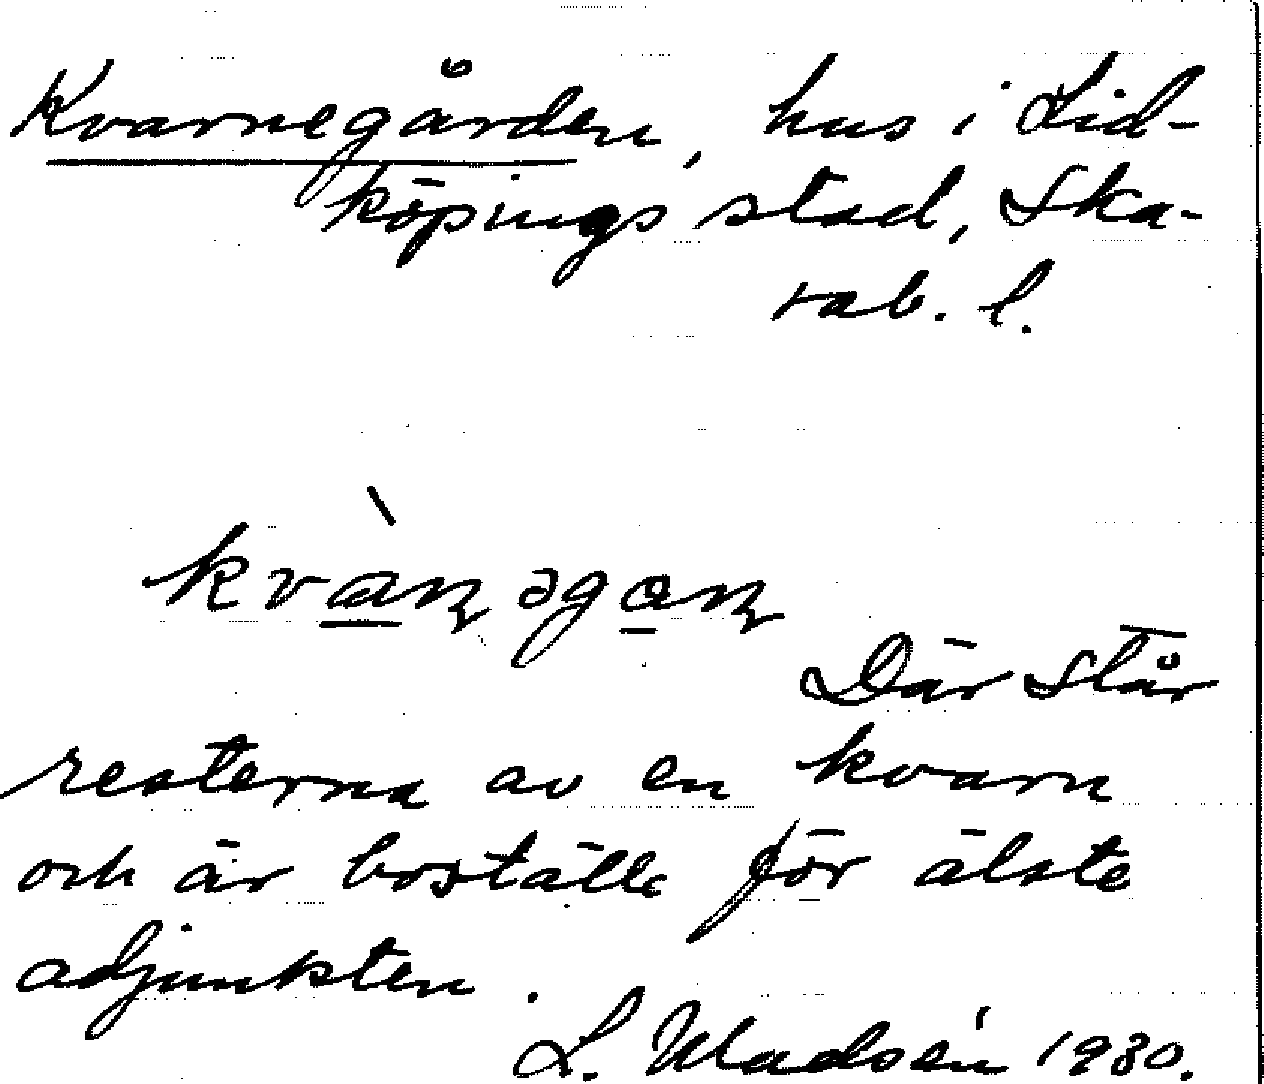 Kvarnegården, hus i Lid-
köpings stad, Ska-
rab. l.
kvànəgan
Där står
resterna av en kvarn
och är boställe för älste
adjunkten.
L. Wadsén 1930.